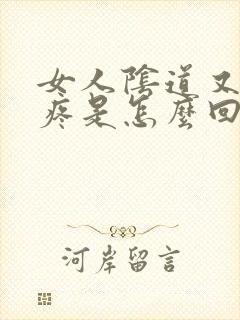 女人陰道又
疼是怎麼回
河岸留言